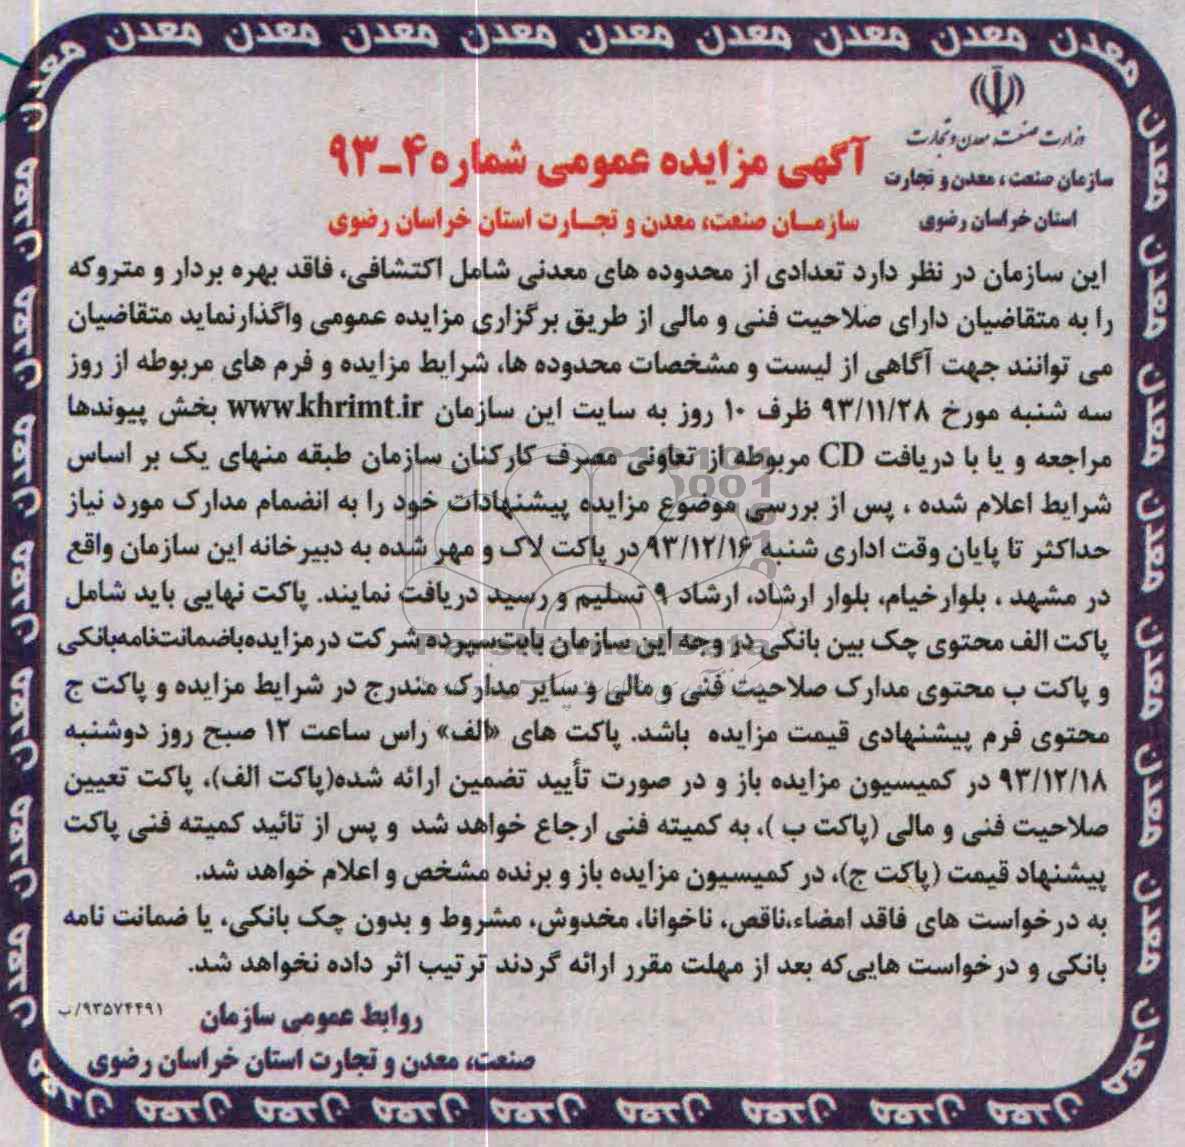 وزارت صنعت، معدن و تجارت
سازمان صنعت، معدن و تجارت
استان خراسان رضوی
آگهی مزایده عمومی شماره ۴_۹۳
سازمان صنعت، معدن و تجارت استان خراسان رضوی
این سازمان در نظر دارد تعدادی از محدوده های معدنی شامل اکتشافی، فاقد بهره بردار و متروکه
را به متقاضیان دارای صلاحیت فنی و مالی از طریق برگزاری مزایده عمومی واگذارنماید متقاضیان
می توانند جهت آگاهی از لیست و مشخصات محدوده ها، شرایط مزایده و فرم های مربوطه از روز
سه شنبه مورخ ۹۳/۱۱/۲۸ ظرف ۱۰ روز به سایت این سازمان www.khrimt.ir بخش پیوندها
مراجعه و یا با دریافت CD مربوطه از تعاونی مصرف کارکنان سازمان طبقه منهای یک بر اساس
شرایط اعلام شده ، پس از بررسی موضوع مزایده پیشنهادات خود را به انضمام مدارک مورد نیاز
حداکثر تا پایان وقت اداری شنبه ۹۳/۱۲/۱۶ در پاکت لاک و مهر شده به دبیرخانه این سازمان واقع
در مشهد ، بلوارخیام، بلوار ارشاد، ارشاد ۹ تسلیم و رسید دریافت نمایند. پاکت نهایی باید شامل
پاکت الف محتوی چک بین بانکی در وجه این سازمان بابت سپرده شرکت در مزایده یا ضمانت‌نامه بانکی
و پاکت ب محتوی مدارک صلاحیت فنی و مالی و سایر مدارک مندرج در شرایط مزایده و پاکت ج
محتوی فرم پیشنهادی قیمت مزایده باشد. پاکت های «الف» راس ساعت ۱۲ صبح روز دوشنبه
۹۳/۱۲/۱۸ در کمیسیون مزایده باز و در صورت تأیید تضمین ارائه شده(پاکت الف)، پاکت تعیین
صلاحیت فنی و مالی (پاکت ب )، به کمیته فنی ارجاع خواهد شد و پس از تائید کمیته فنی پاکت
پیشنهاد قیمت (پاکت ج)، در کمیسیون مزایده باز و برنده مشخص و اعلام خواهد شد.
به درخواست های فاقد امضاء،ناقص، ناخوانا، مخدوش، مشروط و بدون چک بانکی، یا ضمانت نامه
بانکی و درخواست هایی‌که بعد از مهلت مقرر ارائه گردند ترتیب اثر داده نخواهد شد.
روابط عمومی سازمان
صنعت، معدن و تجارت استان خراسان رضوی
۹۳۵۷۴۴۹۱/ب